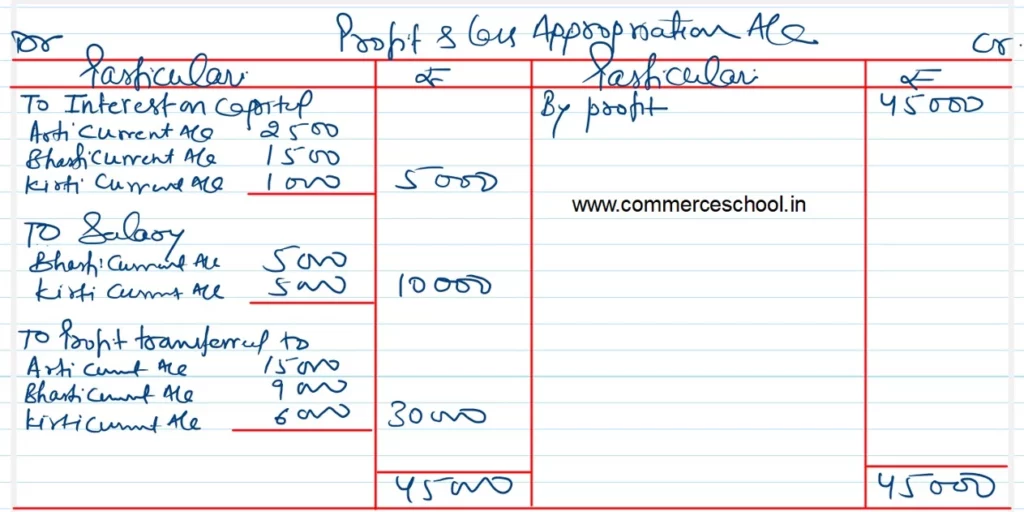 Profit & Loss Appropriation A/c
Dr Cr.
Particulars ₹ Particulars ₹
To Interest on Capital By profit 45000
Arti Current A/c 2500
Bharti Current A/c 1500
Kirti Current A/c 1000 5000
www.commerceschool.in
TO Salary
Bharti Current A/c 5000
Kirti Current A/c 5000 10000
TO Profit transferred to
Arti Current A/c 15000
Bharti Current A/c 9000
Kirti Current A/c 6000 30000
45000 45000